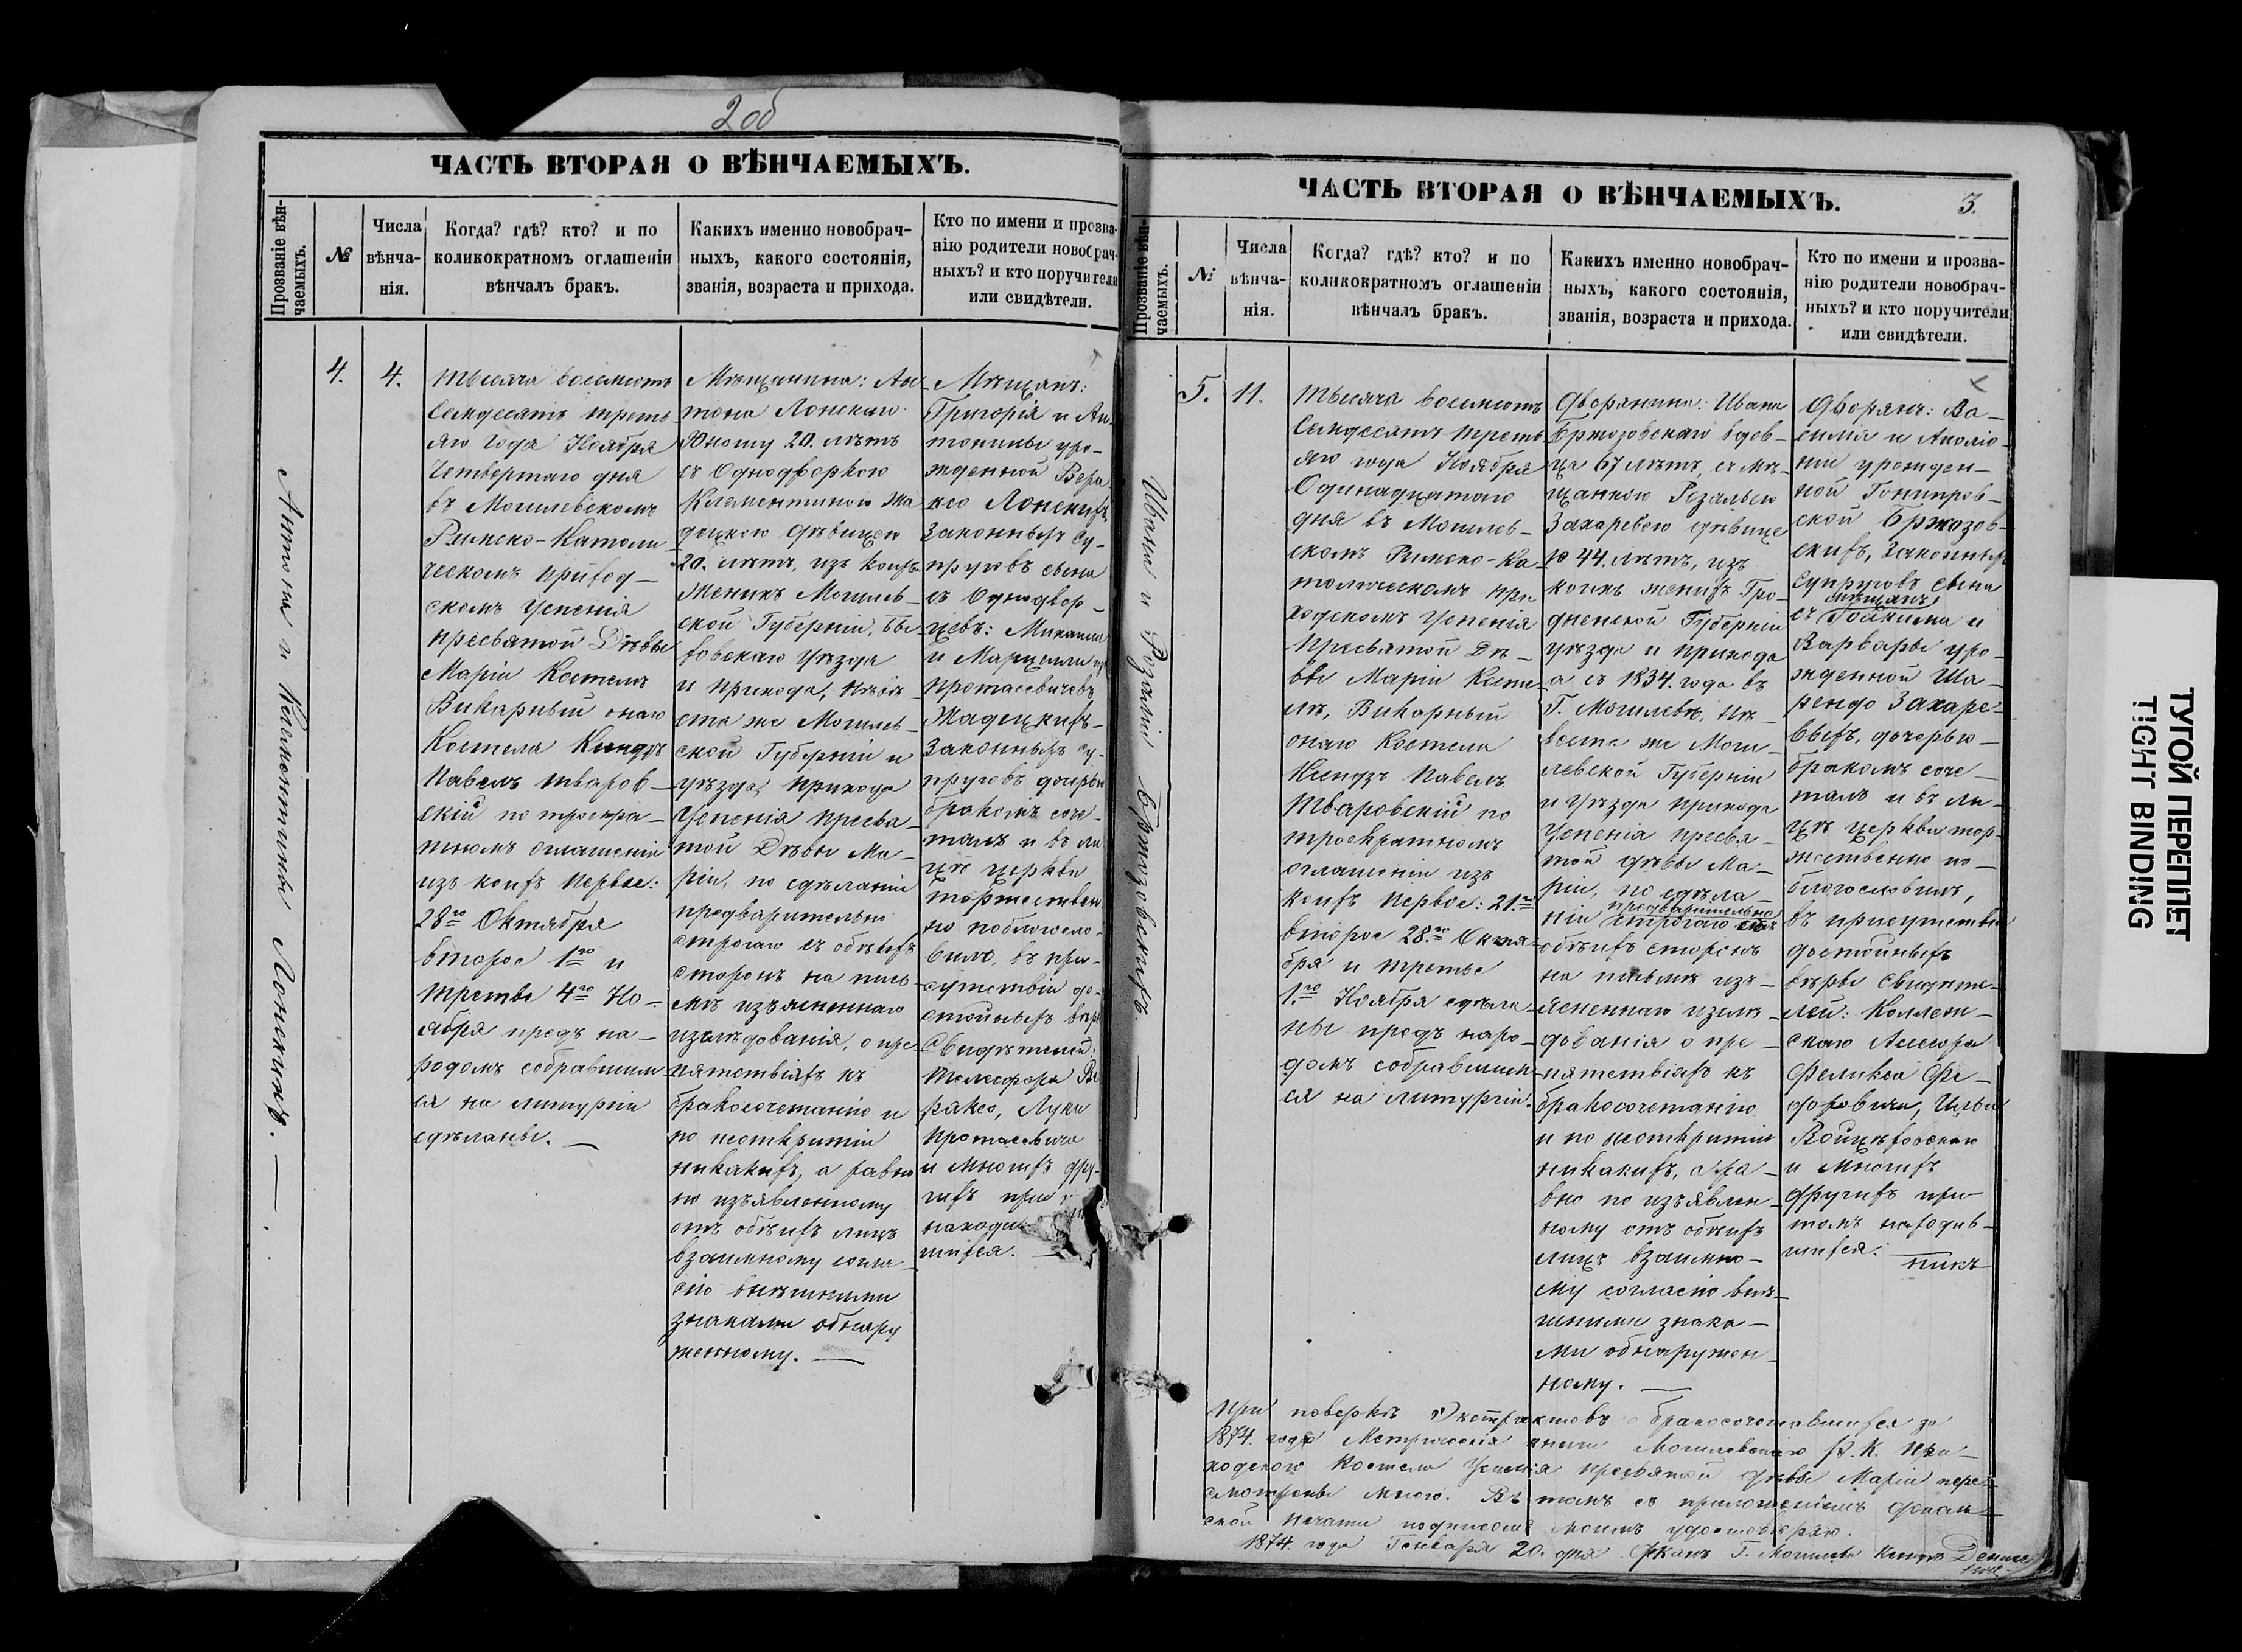 2 об
ЧАСТЬ ВТОРАЯ О ВѢНЧАЕМЫХЪ.
Прозваніе вѣн-
чаемыхъ.
№
Числа
вѣнча-
нія.
Когда? гдѣ? кто? и по
коликократномъ оглашеніи
вѣнчалъ бракъ.
Какихъ именно новобрач-
ныхъ, какого состоянія,
званія, возраста и прихода.
Кто по имени и прозва-
нію родители новобрач-
ныхъ? и кто поручители
или свидѣтели.
Антона и Клементины Лонскихъ.
4.
4.
Тысяча восемьсотъ
Семдесятъ треть
яго года Ноября
Четвертаго дня
въ Могилевскомъ
Римско-Католи
ческомъ приход-
скомъ Успенія
пресвятой Дѣвы
Маріи Костелѣ
Викарный онаго
Костела Ксендзъ
Павелъ Тваров-
скій по троекра-
тномъ оглашеніи
изъ коихъ первое:
28го Октября
второе 1го и
третье 4го Но-
ября предъ на-
родомъ собравшим
ся на литургіи
сдѣланы.
Мѣщанина: Ан-
тона Лонскаго
Юношу 20. лѣтъ
съ Однодворкою
Клементиною Жа
децкою дѣвицею
20. лѣтъ, изъ коихъ
Женихъ Могилев-
ской Губерніи, Бы
ховскаго уѣзда
и прихода, невѣ
ста же Могилев-
ской Губерніи и
уѣзда, прихода
Успенія пресвя-
той Дѣвы Ма-
ріи, по сдѣланіи
предварительно
строгаго съ обѣихъ
сторонъ на пись
мѣ изъясненнаго
изслѣдованія, о пре
пятствіяхъ къ
бракосочетанію и
по неоткрытіи
никакихъ, а равно
по изъявленному
отъ обѣихъ лицъ
взаимному согла-
сію внѣшними
знаками обнару
женному.
Мѣщанъ:
Григорія и Ан-
тонины уро-
жденной Вера-
ксо Лонскихъ
Законныхъ су-
пруговъ сына
съ Однодвор-
цевъ: Михаила
и Марцеллы
Протасевичевъ
Жадецкихъ
Законныхъ су-
пруговъ дочерью
бракомъ соче-
талъ и въ ли
цѣ церкви
торжествен
но поблагосло-
вилъ, въ при-
сутствіи до-
стойныхъ вѣры
Свидѣтелей:
Телесфора Ве
раксо, Луки
Протасевича
и многихъ дру-
гихъ при
находив
шихся.
ЧАСТЬ ВТОРАЯ О ВѢНЧАЕМЫХЪ.
3.
Прозваніе вѣн-
чаемыхъ.
№
Числа
вѣнча-
нія.
Когда? гдѣ? кто? и по
коликократномъ оглашеніи
вѣнчалъ бракъ.
Какихъ именно новобрач-
ныхъ, какого состоянія,
званія, возраста и прихода.
Кто по имени и прозва-
нію родители новобрач-
ныхъ? и кто поручители
или свидѣтели.
Ивана и Розаліи Бржозовскихъ.
5.
11.
Тысяча восемьсотъ
Семдесятъ треть
яго года Ноября
Одинадцатаго
дня въ Могилев-
скомъ Римско-Ка
толическомъ при
ходскомъ Успенія
Пресвятой Дѣ-
вы Маріи Косте
лѣ, Викарный
онаго Костела
Ксендзъ Павелъ
Тваровскій по
троекратномъ
оглашеніи изъ
коихъ первое: 21го
второе 28го Октя
бря и третье
1го Ноября сдѣла
ны предъ наро-
домъ собравшим
ся на литургіи.
Дворянина: Ивана
Бржозовскаго вдов-
ца 67 лѣтъ, съ мѣ-
щанкою Розальею
Захаревою дѣвице
ю 44. лѣтъ, изъ
коихъ женихъ Гро-
дненской Губерніи
уѣзда и прихода
а съ 1834. года въ
Г. Могилевѣ, не-
вѣста же Моги-
левской Губерніи
и уѣзда прихода
Успенія пресвя-
той дѣвы Ма-
ріи, по сдѣла-
предварительно
ніи строгаго съ
обѣихъ сторонъ
на письмѣ изъ-
ясненнаго изслѣ-
дованія о пре-
пятствіяхъ къ
бракосочетанію
и по неоткрытіи
никакихъ, а ра-
вно по изъявлен-
ному отъ обѣихъ
лицъ взаимно-
му согласію внѣ-
шними знака-
ми обнаружен-
ному.
Дворянъ: Ва-
силія и Аполло-
ніи урожден-
ной
ской Бржозов-
скихъ, Законныхъ
супруговъ сына
мѣщанъ
съ Іоакима и
Варвары уро-
жденной Ша-
рендо Захаре-
выхъ, дочерью
бракомъ соче-
талъ и въ ли-
цѣ церкви тор-
жественно по-
благословилъ,
въ присутствіи
достойныхъ
вѣры Свидѣте-
лей: Коллеж-
скаго Асессора
Феликса Фе-
доровича, Ильи
Войцѣховскаго
и многихъ
другихъ при
томъ находив-
шихся.
При повѣркѣ актовъ о бракосочетавшихся за
1874. годъ Метрическія книги Могилевскаго Р.К. При-
ходскаго Костела Успенія пресвятой дѣвы Маріи пере-
смотрены мною. Въ томъ съ приложеніемъ Декан-
ской печати подписомъ моимъ удостовѣряю.
1874. года Генваря 20. дня Деканъ Г. Могилева Ксендзъ
ТУГОЙ ПЕРЕПЛЕТ
TIGHT BINDING